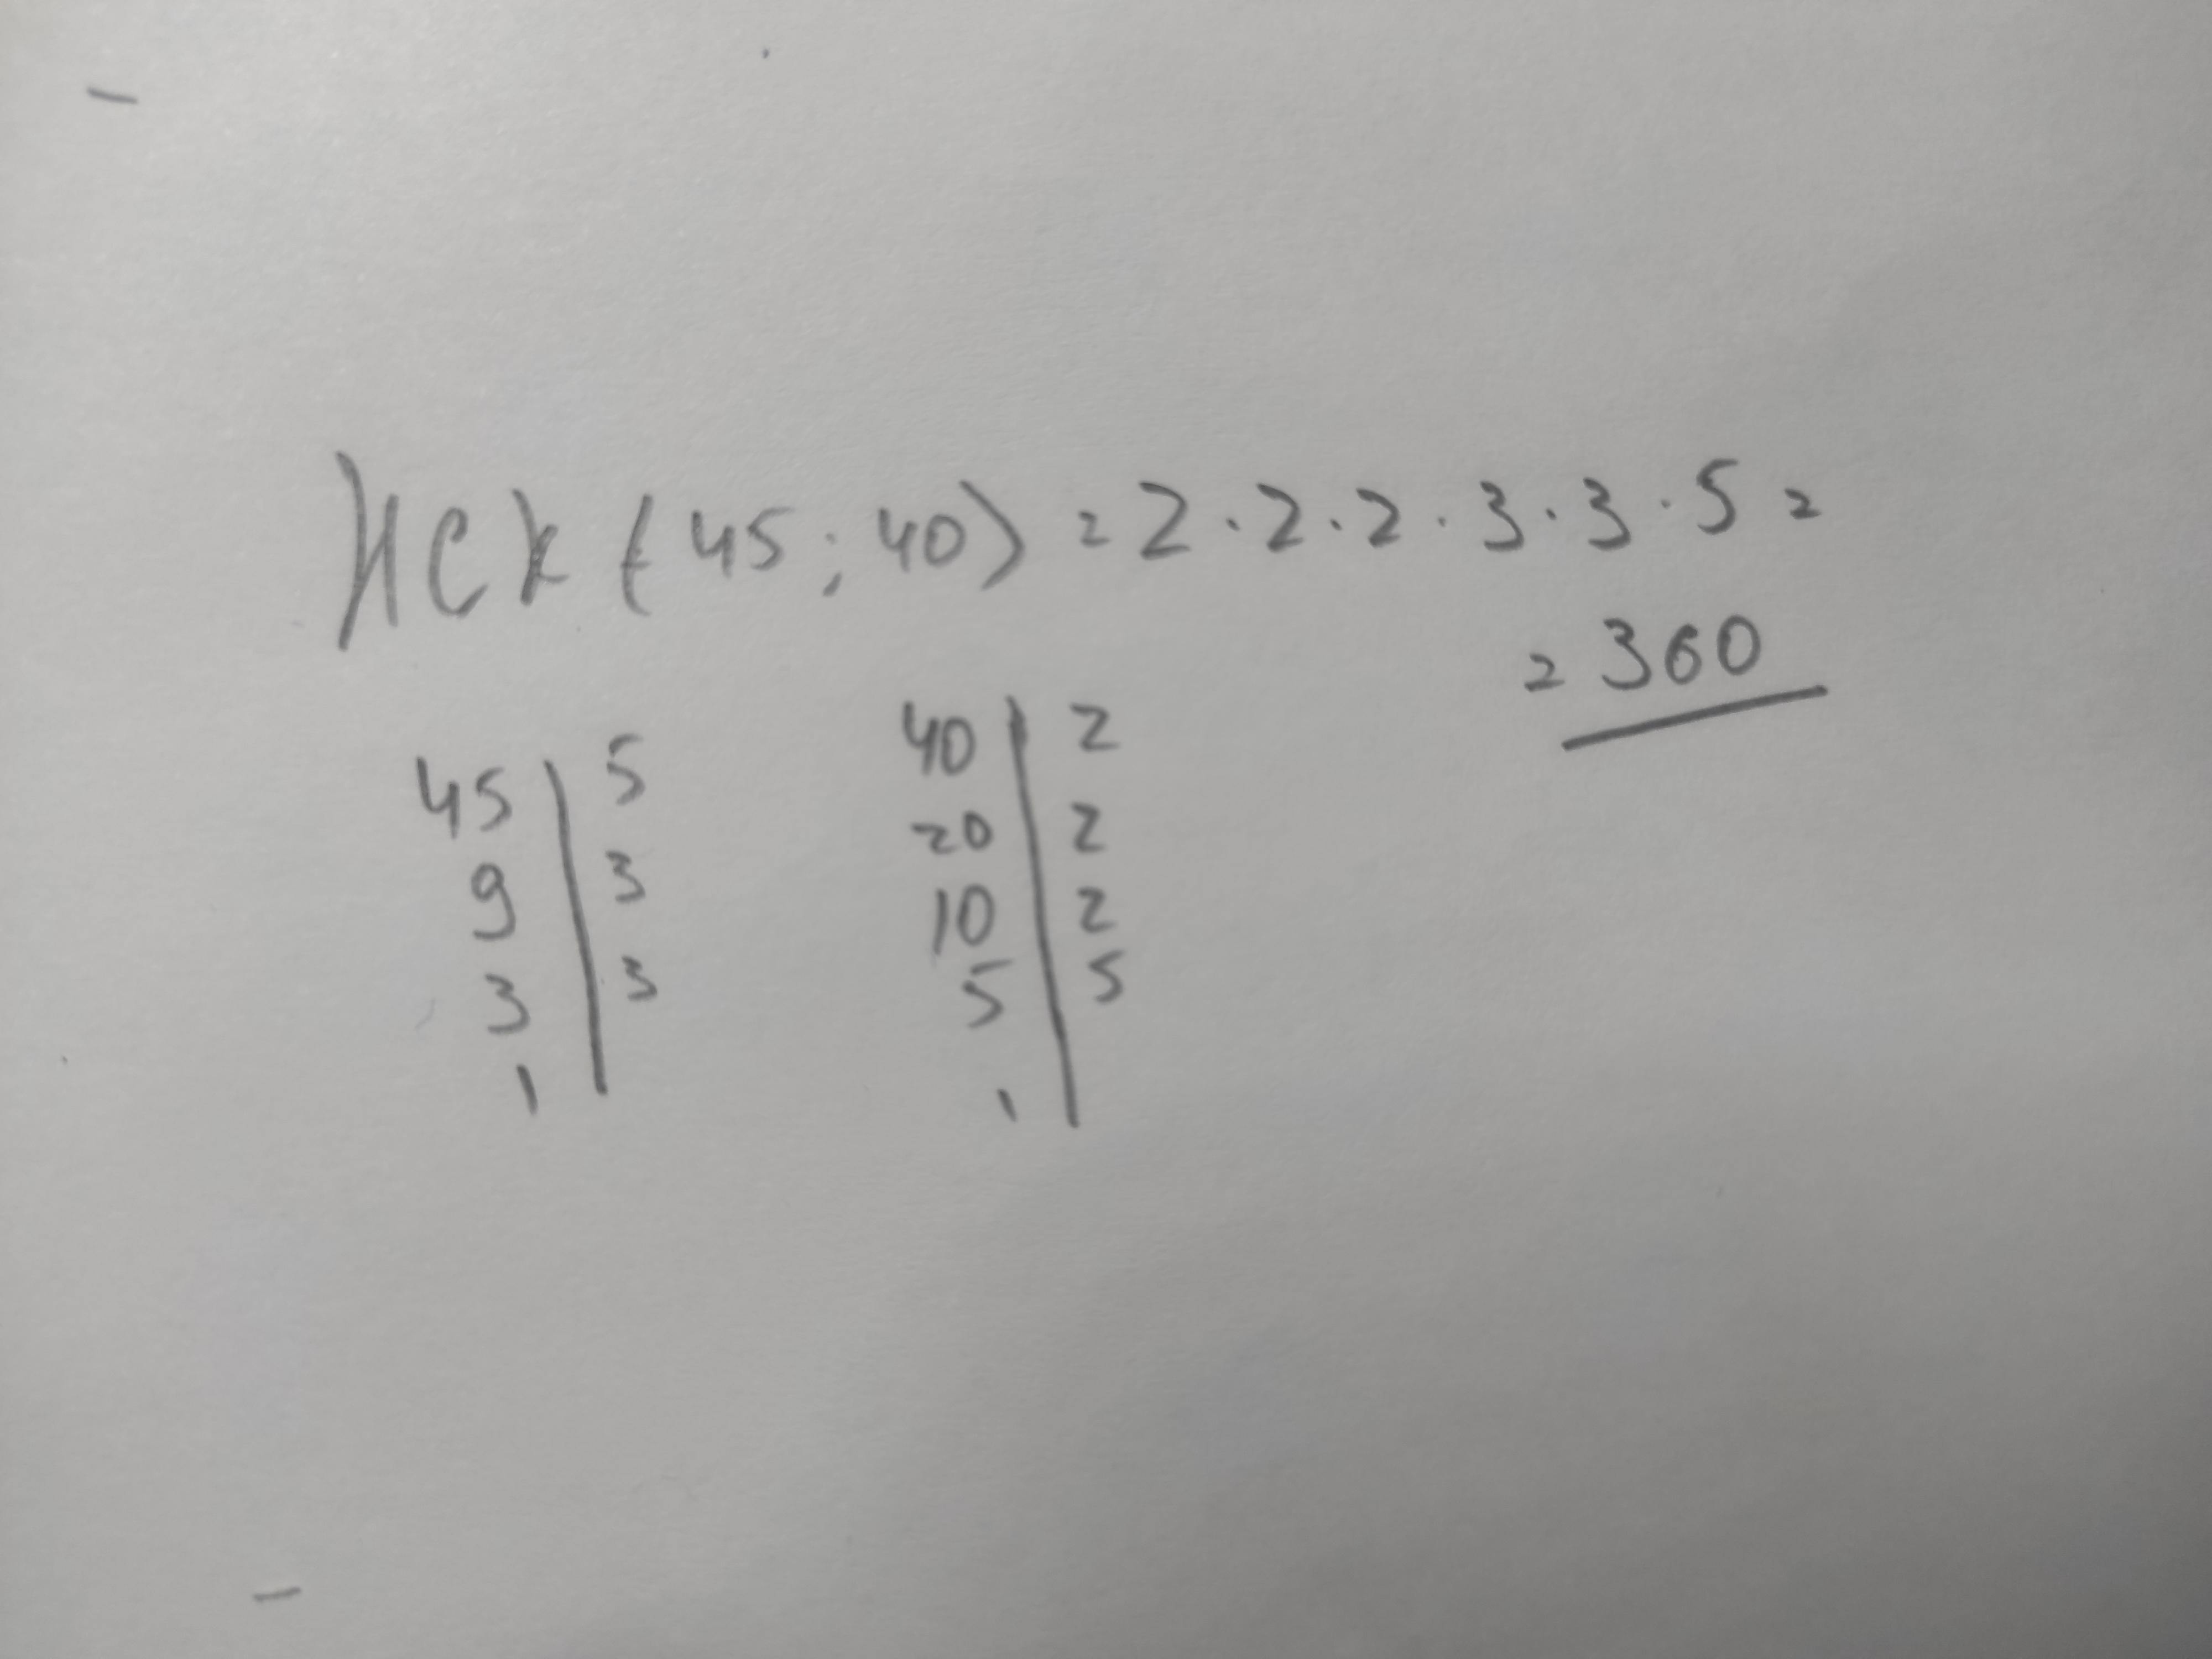 НСК (45; 40) = 2 · 2 · 2 · 3 · 3 · 5 =
= 360
45 | 5
9 | 3
3 | 3
1 |
40 | 2
20 | 2
10 | 2
5 | 5
1 |